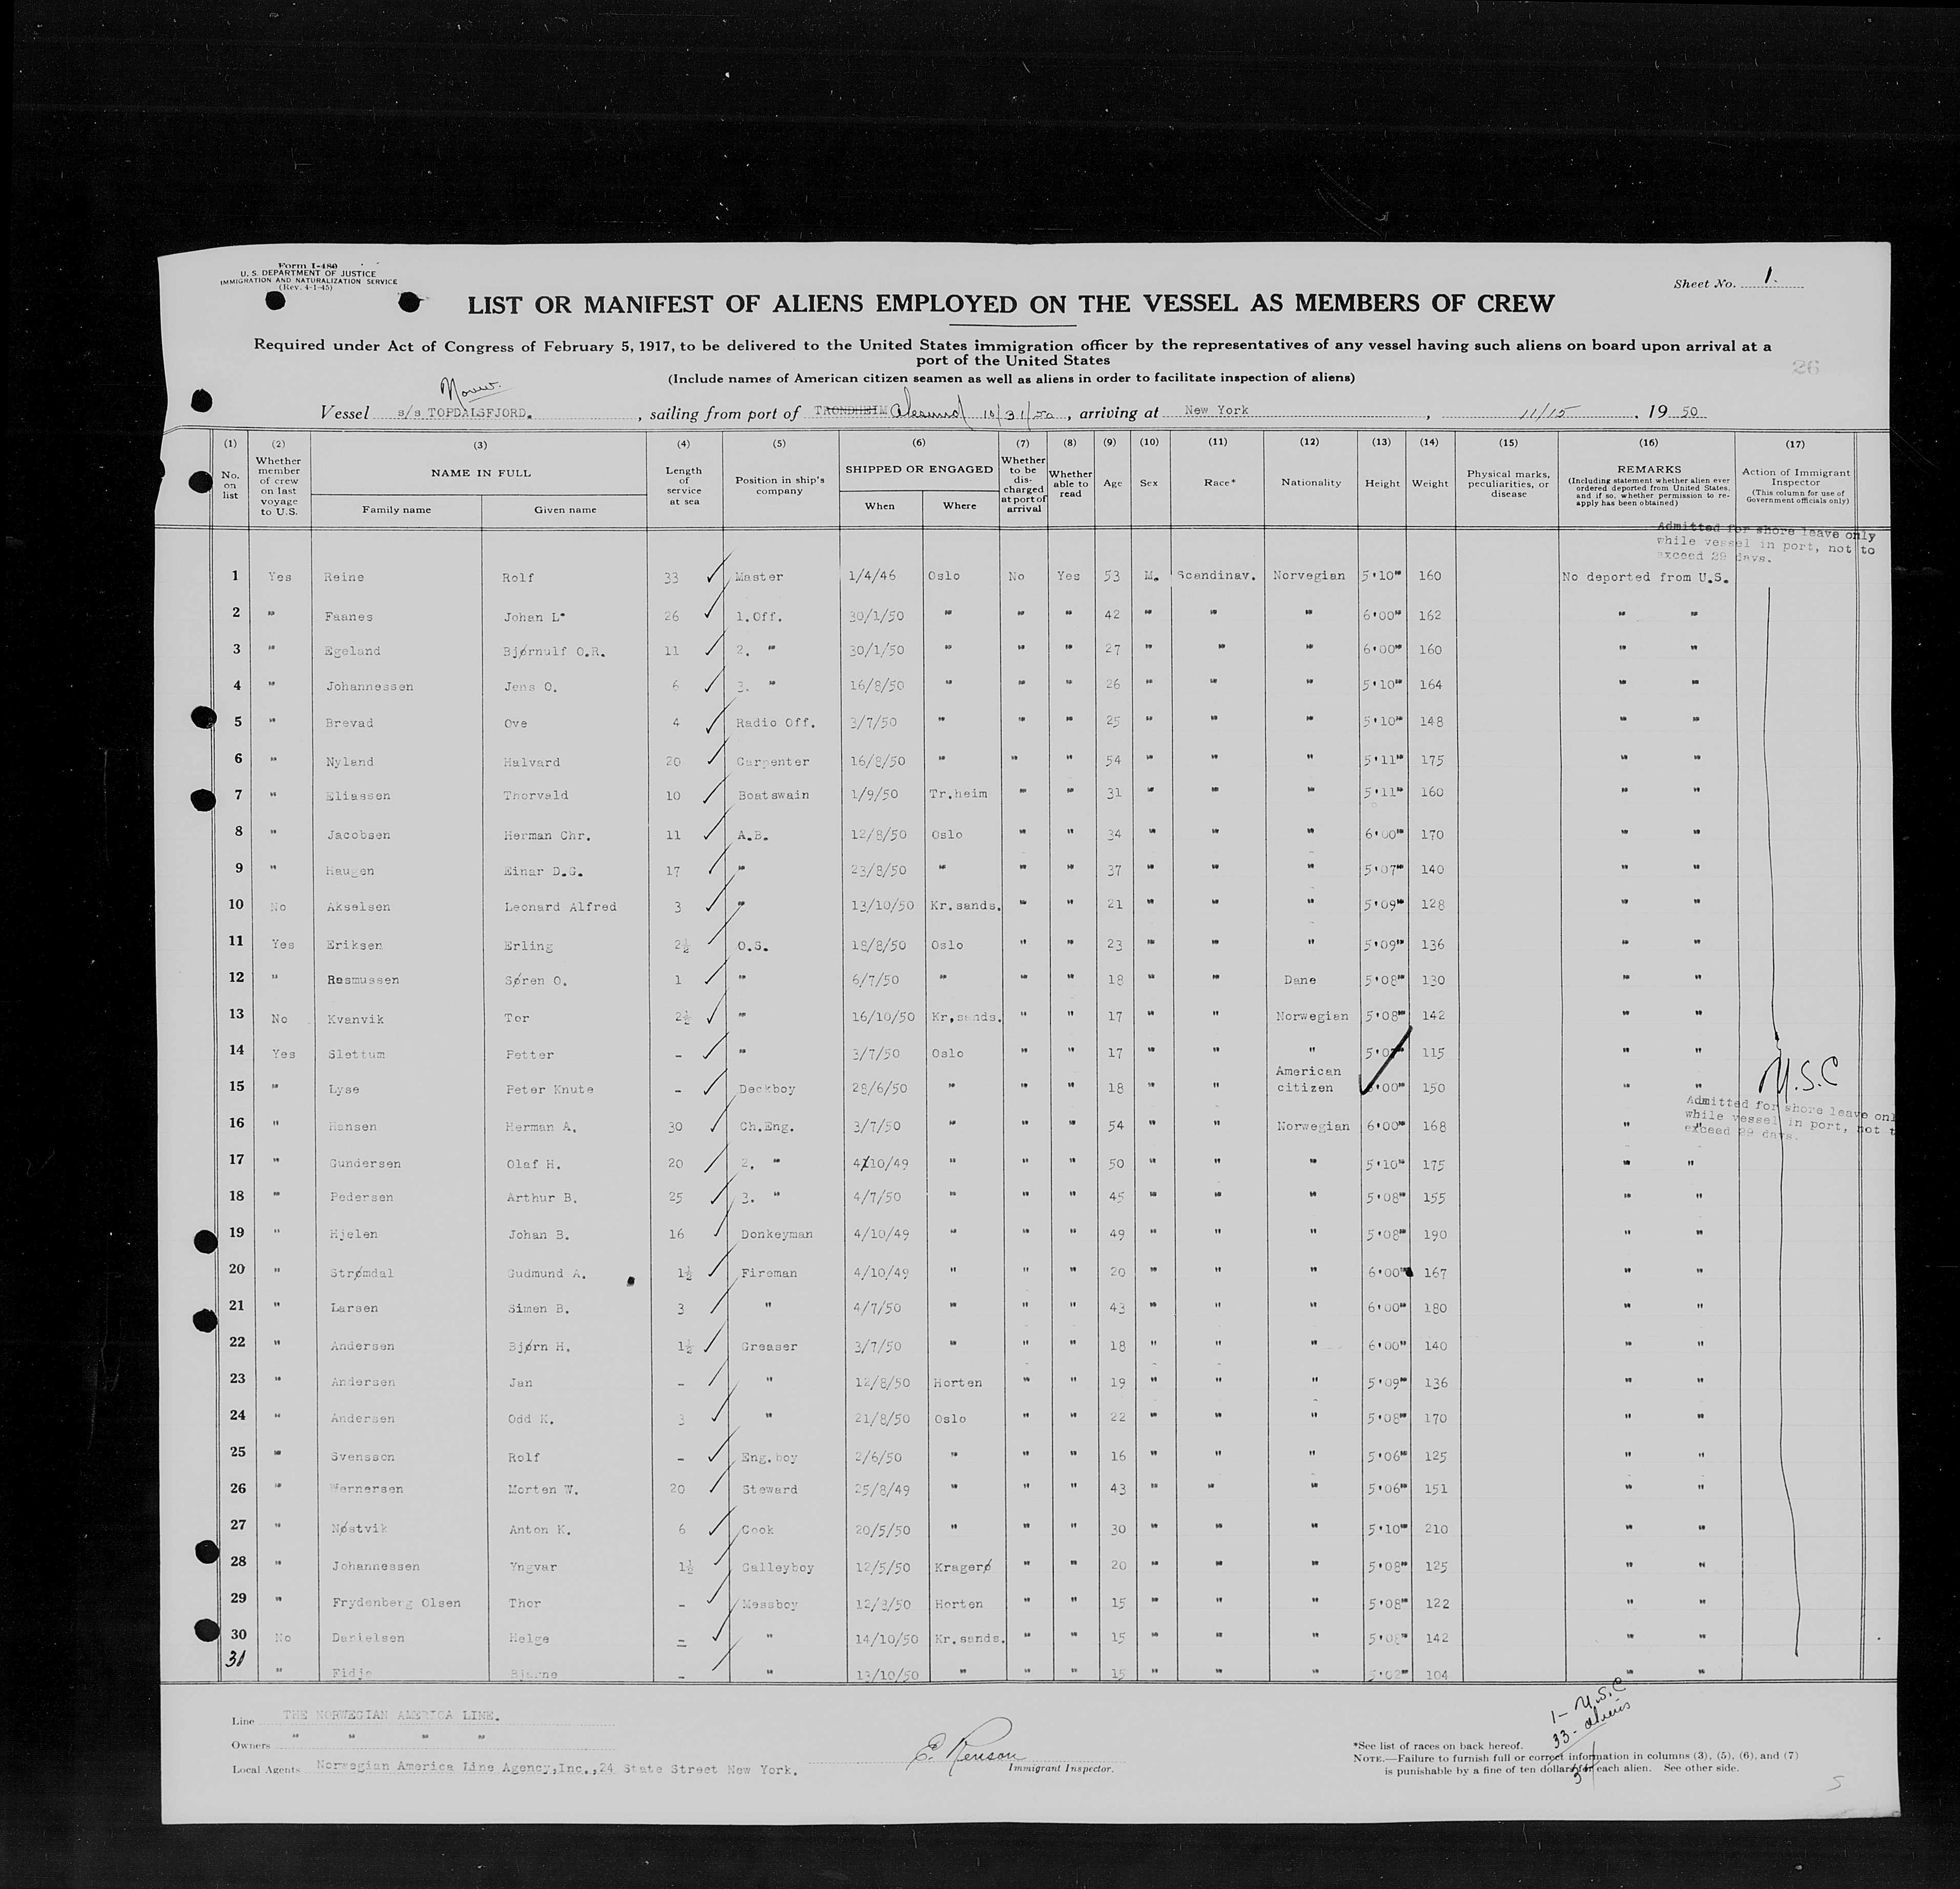 Form I-480
U. S. DEPARTMENT OF JUSTICE
IMMIGRATION AND NATURALIZATION SERVICE
(Rev. 4-1-45)
Sheet No. 1.
LIST OR MANIFEST OF ALIENS EMPLOYED ON THE VESSEL AS MEMBERS OF CREW
Required under Act of Congress of February 5, 1917, to be delivered to the United States immigration officer by the representatives of any vessel having such aliens on board upon arrival at a
port of the United States
26
(Include names of American citizen seamen as well as aliens in order to facilitate inspection of aliens)
Vessel s/s TOPDALSFJORD. , sailing from port of TRONDHEIM Alesund 10/31/50 , arriving at New York , 11/15 , 19 50
(1) (2) (3) (4) (5) (6) (7) (8) (9) (10) (11) (12) (13) (14) (15) (16) (17)
No. on list
Whether member of crew on last voyage to U.S.
NAME IN FULL
Family name Given name
Length of service at sea
Position in ship's company
SHIPPED OR ENGAGED
When Where
Whether to be discharged at port of arrival
Whether able to read
Age Sex Race* Nationality Height Weight
Physical marks, peculiarities, or disease
REMARKS
(Including statement whether alien ever ordered deported from United States, and if so, whether permission to reapply has been obtained)
Action of Immigrant Inspector
(This column for use of Government officials only)
Admitted for shore leave only
while vessel in port, not to
exceed 29 days.
1 Yes Reine Rolf 33 Master 1/4/46 Oslo No Yes 53 M. Scandinav. Norwegian 5'10" 160 No deported from U.S.
2 " Faanes Johan L. 26 1.Off. 30/1/50 " " " 42 " " " 6'00" 162 " "
3 " Egeland Bjørnulf O.R. 11 2. " 30/1/50 " " " 27 " " " 6'00" 160 " "
4 " Johannessen Jens O. 6 3. " 16/8/50 " " " 26 " " " 5'10" 164 " "
5 " Brevad Ove 4 Radio Off. 3/7/50 " " " 25 " " " 5'10" 148 " "
6 " Nyland Halvard 20 Carpenter 16/8/50 " " " 54 " " " 5'11" 175 " "
7 " Eliassen Thorvald 10 Boatswain 1/9/50 Tr.heim " " 31 " " " 5'11" 160 " "
8 " Jacobsen Herman Chr. 11 A.B. 12/8/50 Oslo " " 34 " " " 6'00" 170 " "
9 " Haugen Einar D.G. 17 " 23/8/50 " " " 37 " " " 5'07" 140 " "
10 No Akselsen Leonard Alfred 3 " 13/10/50 Kr.sands. " " 21 " " " 5'09" 128 " "
11 Yes Eriksen Erling 2½ O.S. 18/8/50 Oslo " " 23 " " " 5'09" 136 " "
12 " Rasmussen Søren O. 1 " 6/7/50 " " " 18 " " Dane 5'08" 130 " "
13 No Kvanvik Tor 2½ " 16/10/50 Kr,sands. " " 17 " " Norwegian 5'08" 142 " "
14 Yes Slettum Petter - " 3/7/50 Oslo " " 17 " " " 5'07" 115 " "
15 " Lyse Peter Knute - Deckboy 28/6/50 " " " 18 " " American citizen 6'00" 150 " " U.S.C
Admitted for shore leave only
while vessel in port, not t
exceed 29 days.
16 " Hansen Herman A. 30 Ch.Eng. 3/7/50 " " " 54 " " Norwegian 6'00" 168 " "
17 " Gundersen Olaf H. 20 2. " 4/10/49 " " " 50 " " " 5'10" 175 " "
18 " Pedersen Arthur B. 25 3. " 4/7/50 " " " 45 " " " 5'08" 155 " "
19 " Hjelen Johan B. 16 Donkeyman 4/10/49 " " " 49 " " " 5'08" 190 " "
20 " Strømdal Gudmund A. 1½ Fireman 4/10/49 " " " 20 " " " 6'00" 167 " "
21 " Larsen Simen B. 3 " 4/7/50 " " " 43 " " " 6'00" 180 " "
22 " Andersen Bjørn H. 1½ Greaser 3/7/50 " " " 18 " " " 6'00" 140 " "
23 " Andersen Jan - " 12/8/50 Horten " " 19 " " " 5'09" 136 " "
24 " Andersen Odd K. 3 " 21/8/50 Oslo " " 22 " " " 5'08" 170 " "
25 " Svensson Rolf - Eng.boy 2/6/50 " " " 16 " " " 5'06" 125 " "
26 " Wernersen Morten W. 20 Steward 25/8/49 " " " 43 " " " 5'06" 151 " "
27 " Nøstvik Anton K. 6 Cook 20/5/50 " " " 30 " " " 5'10" 210 " "
28 " Johannessen Yngvar 1½ Galleyboy 12/5/50 Kragerø " " 20 " " " 5'08" 125 " "
29 " Frydenberg Olsen Thor - Messboy 12/8/50 Horten " " 15 " " " 5'08" 122 " "
30 No Danielsen Helge - " 14/10/50 Kr.sands. " " 15 " " " 5'08" 142 " "
31 " Fidje Bjarne - " 13/10/50 " " " 15 " " " 5'02" 104 " "
Line THE NORWEGIAN AMERICA LINE.
Owners " " " "
Local Agents Norwegian America Line Agency,Inc.,24 State Street New York.
E. Renson
Immigrant Inspector.
1- U.S.C
33- aliens
34
*See list of races on back hereof.
NOTE.—Failure to furnish full or correct information in columns (3), (5), (6), and (7)
is punishable by a fine of ten dollars for each alien. See other side.